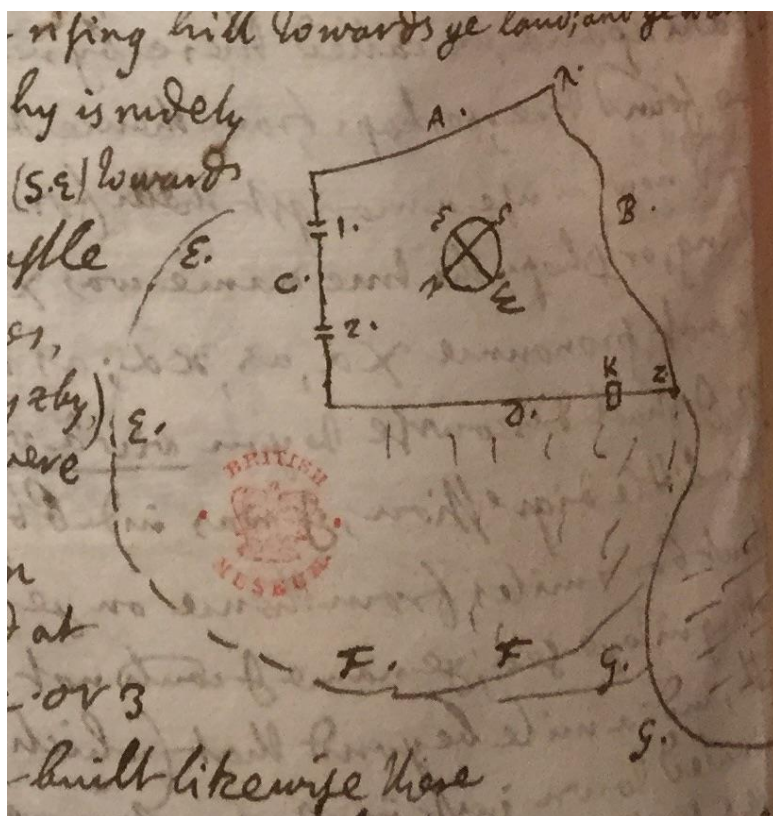 rising hill towards ye land; and ye
hy is rudely
(S.E) towards
stle
zby,)
were
at
or 3
built likewise there
A.
B.
1.
C.
2.
K
Z
D.
E.
E.
F.
F
G.
G.
BRITISH
MUSEUM